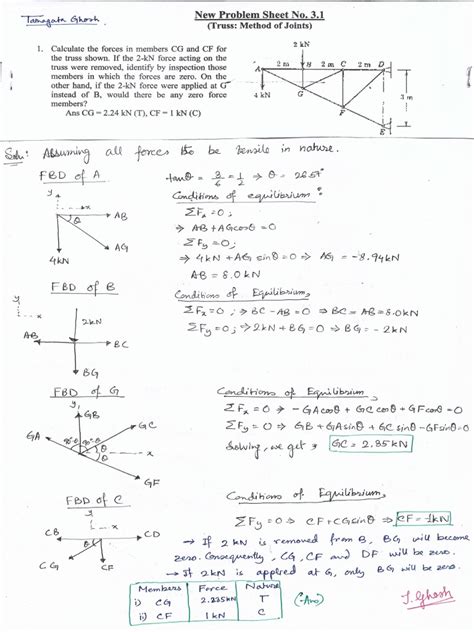 Tamagata Ghosh
New Problem Sheet No. 3.1
(Truss: Method of Joints)
1. Calculate the forces in members CG and CF for
the truss shown. If the 2-kN force acting on the
truss were removed, identify by inspection those
members in which the forces are zero. On the
other hand, if the 2-kN force were applied at G
instead of B, would there be any zero force
members?
Ans CG = 2.24 kN (T), CF = 1 kN (C)
2 kN
A 2 m B 2 m C 2 m D
4 kN
G
F
3 m
E
Soln: Assuming all forces to be tensile in nature.
FBD of A
y
x
θ
AB
AG
4kN
tanθ = 3/6 = 1/2 ⇒ θ = 26.57°
Conditions of equilibrium:
ΣFx = 0;
⇒ AB + AG cosθ = 0
ΣFy = 0;
⇒ 4kN + AG sinθ = 0 ⇒ AG = -8.94kN
AB = 8.0 kN
FBD of B
y
x
2kN
AB
BC
BG
Conditions of Equilibrium,
ΣFx = 0; ⇒ BC - AB = 0 ⇒ BC = AB = 8.0 kN
ΣFy = 0; ⇒ 2kN + BG = 0 ⇒ BG = - 2kN
FBD of G
y
GB
GC
GA
90-θ 90-θ
θ
θ
x
GF
Conditions of Equilibrium,
ΣFx = 0 ⇒ - GA cosθ + GC cosθ + GF cosθ = 0
ΣFy = 0 ⇒ GB + GA sinθ + GC sinθ - GF sinθ = 0
Solving, we get, GC = 2.235 kN
FBD of C
y
x
CB
CD
θ
CG
CF
Conditions of Equilibrium,
ΣFy = 0 ⇒ CF + CG sinθ ⇒ CF = -1kN
→ If 2 kN is removed from B, BG will become
zero. Consequently, CG, CF and DF will be zero.
→ If 2kN is applied at G, only BG will be zero.
Members Force Nature
i) CG 2.235kN T
ii) CF 1 kN C
(Ans)
T. Ghosh